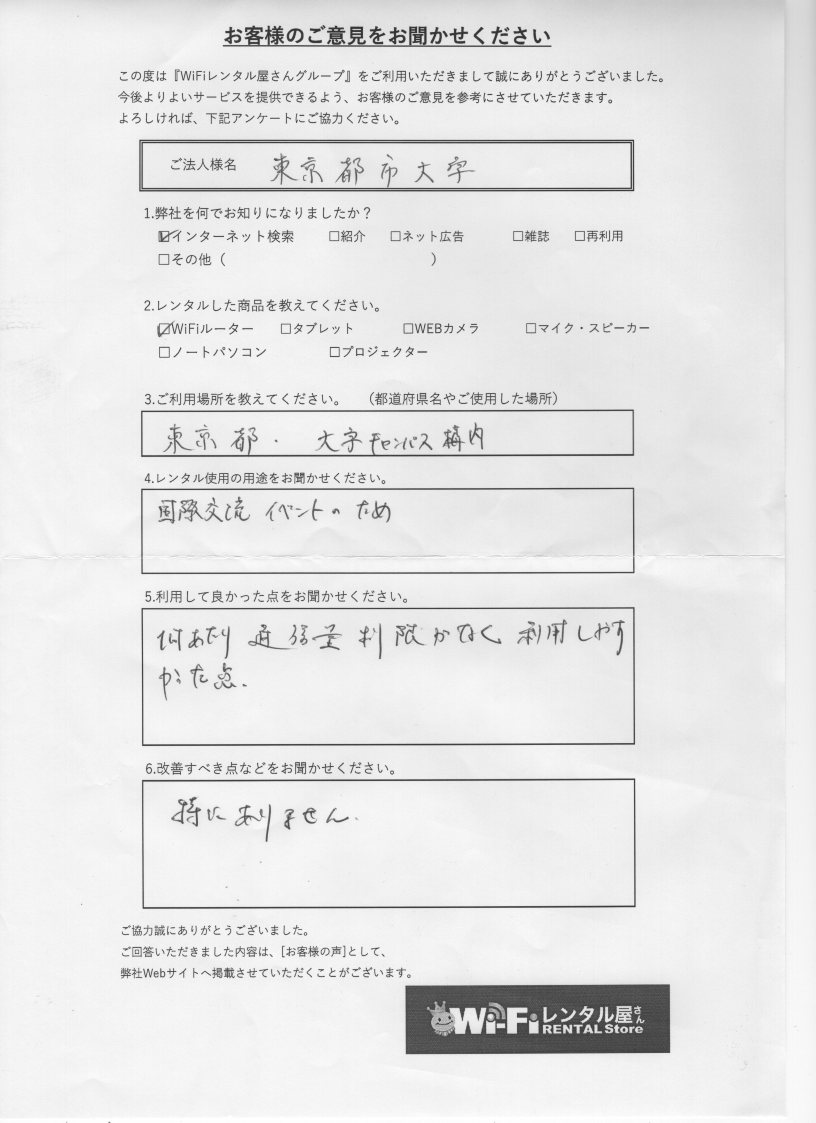 お客様のご意見をお聞かせください
この度は『WiFiレンタル屋さんグループ』をご利用いただきまして誠にありがとうございました。
今後よりよいサービスを提供できるよう、お客様のご意見を参考にさせていただきます。
よろしければ、下記アンケートにご協力ください。
ご法人様名 東京都市大学
1.弊社を何でお知りになりましたか？
☑インターネット検索 □紹介 □ネット広告 □雑誌 □再利用
□その他（ ）
2.レンタルした商品を教えてください。
☑WiFiルーター □タブレット □WEBカメラ □マイク・スピーカー
□ノートパソコン □プロジェクター
3.ご利用場所を教えてください。 （都道府県名やご使用した場所）
東京都． 大学キャンパス構内
4.レンタル使用の用途をお聞かせください。
国際交流イベントのため
5.利用して良かった点をお聞かせください。
通信量制限がなく 利用しやす
かった点．
6.改善すべき点などをお聞かせください。
特にありません．
ご協力誠にありがとうございました。
ご回答いただきました内容は、[お客様の声]として、
弊社Webサイトへ掲載させていただくことがございます。
Wi-Fiレンタル屋さん
RENTAL Store